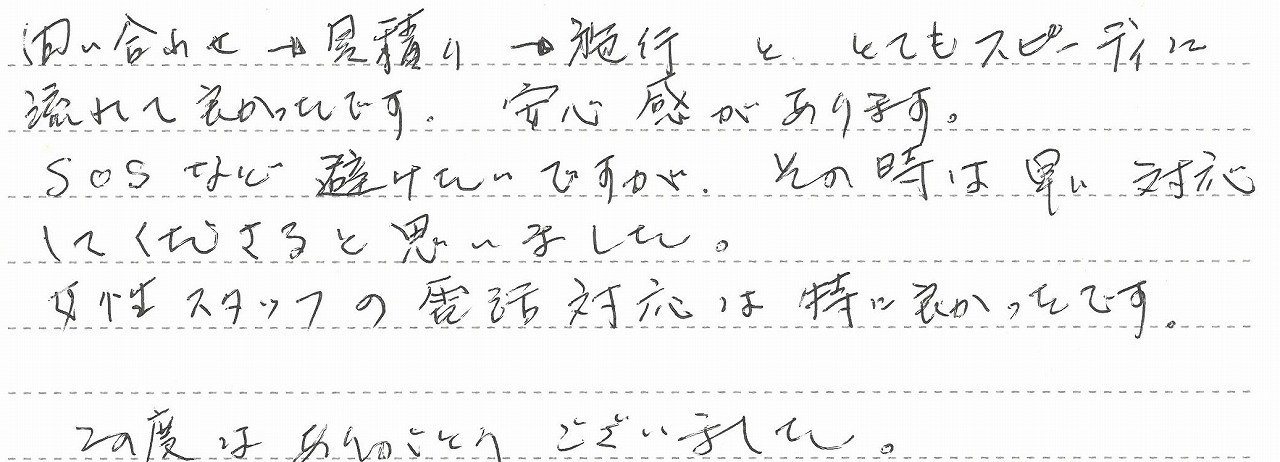 問い合わせ→見積り→施行と、とてもスピーディに
流れて良かったです。安心感があります。
SOSなど避けたいですが、その時は早い対応
してくださると思いました。
女性スタッフの電話対応は特に良かったです。
この度はありがとうございました。